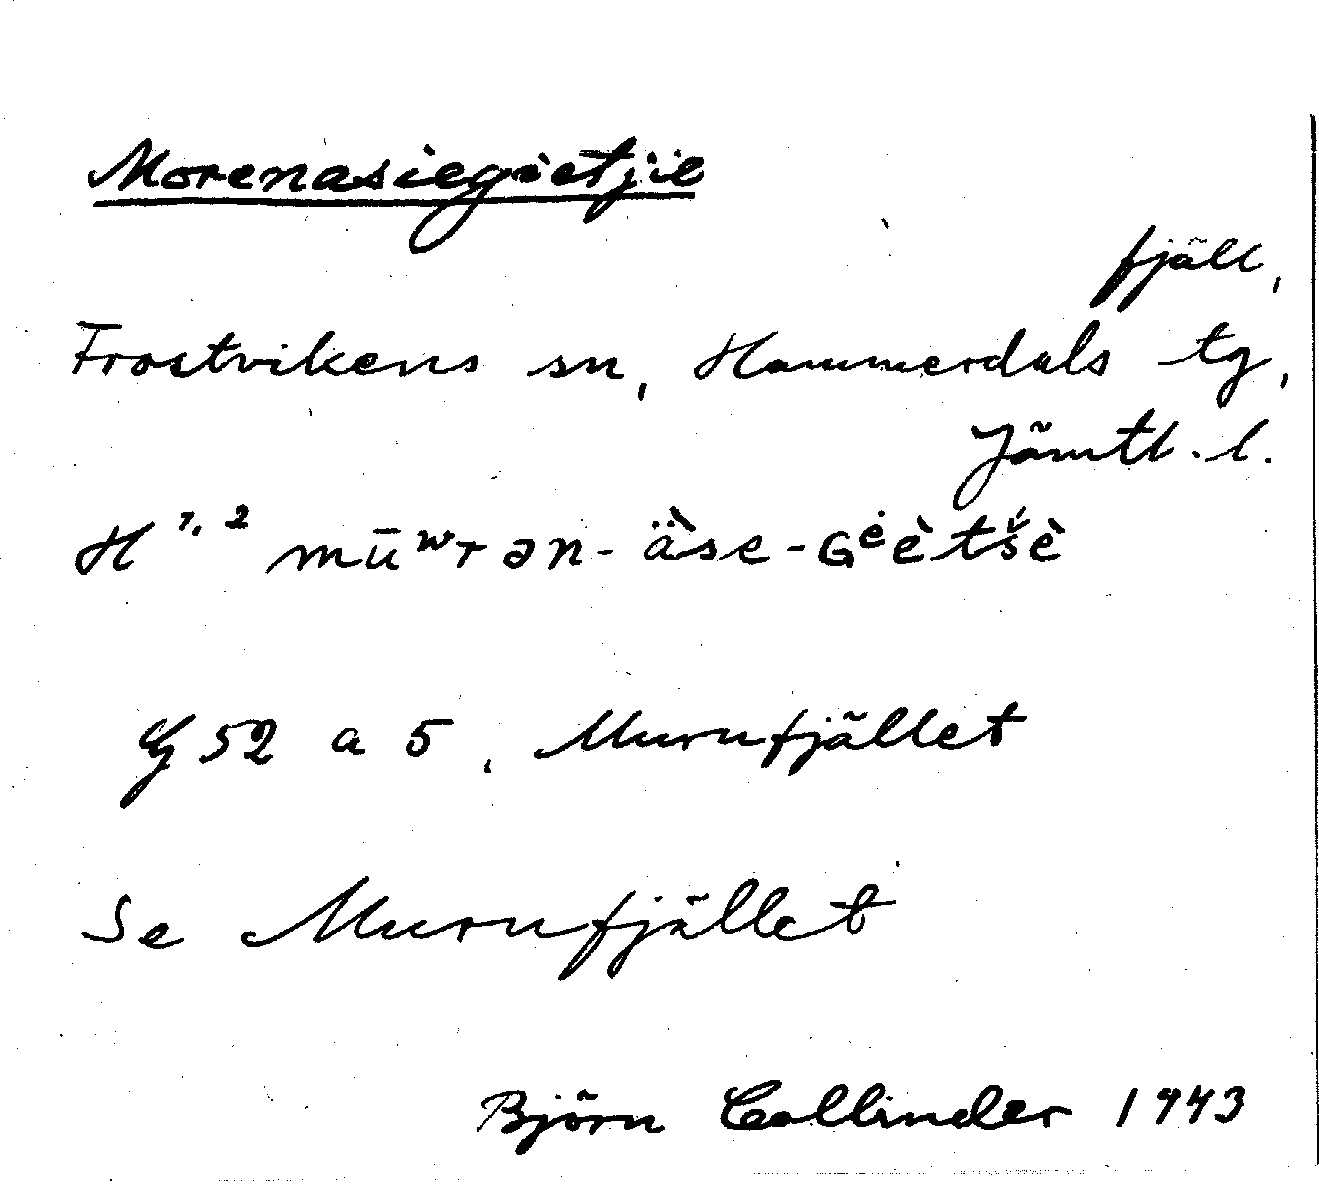 Morenasiegietjie
fjäll,
Frostvikens sn, Hammerdals tg,
Jämtl. l.
H 1, 2 mūʷrən-ä̀se-Gėètśè
G 52 a 5, Murufjället
Se Murufjället
Björn Collinder 1943